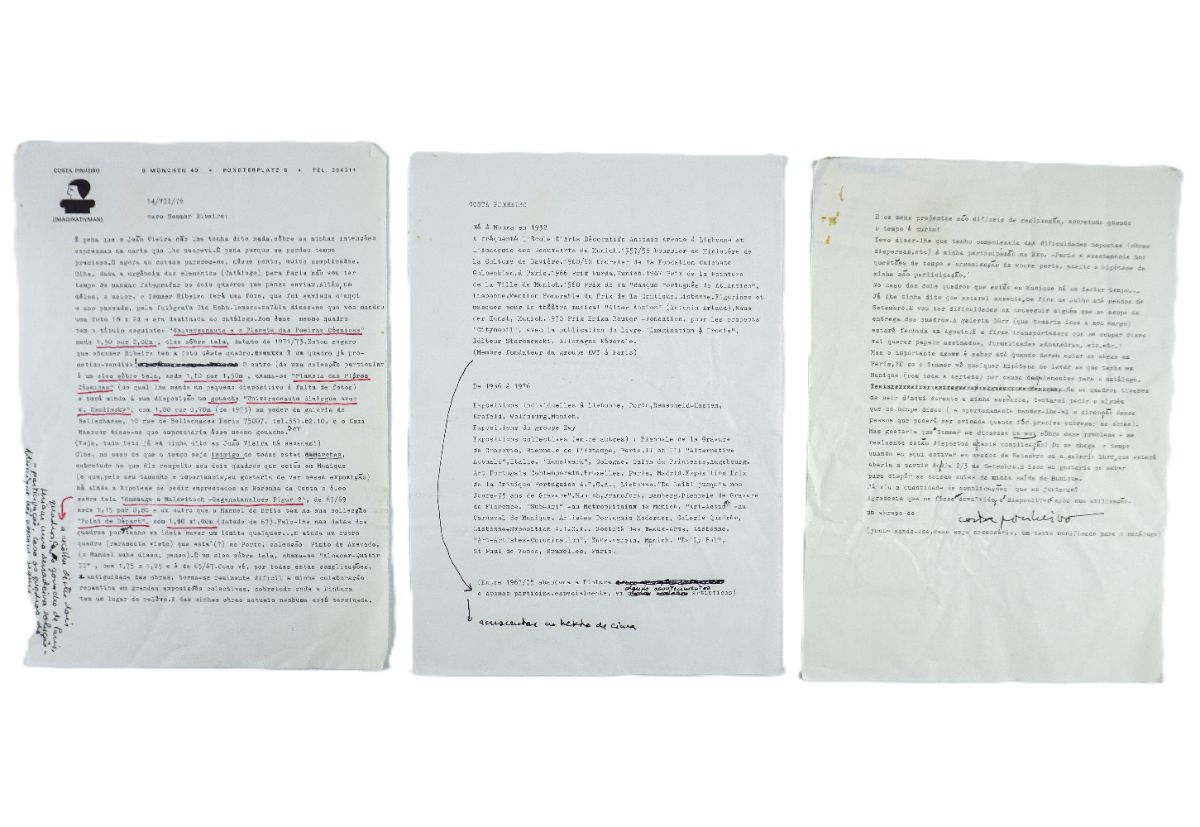 COSTA PINHEIRO
8 MÜNCHEN 40 • PÜNDTERPLATZ 8 • TEL.
(IMAGINATIVMAN)
14/VII/76
caro Sommer Ribeiro:
É pena que o João Vieira não lhe tenha dito nada sôbre as minhas intenções
expressas na carta que lhe escrevi. É pena porque se perdeu tempo
precioso. E agora as coisas parecem-me, nêsse ponto, muito complicadas.
Olhe, dada a urgência dos elementos (Catálogo) para Paris não vou ter
tempo de mandar fotografar os dois quadros que penso enviar. Aliás, um
dêles, o maior, o Sommer Ribeiro terá uma foto, que foi enviada d'aqui
o ano passado, pela fotógrafa
uma foto 18 x 24 e era destinada ao catálogo. esse mesmo quadro
tem o título seguinte: "Universonauta e o Planeta das Poeiras Cósmicas"
mede 1,50 por 2,00m, óleo sôbre tela, datado de 1971/73. Estou seguro
que o Sommer Ribeiro tem a foto dêste quadro. É um quadro já pro-
metido-vendido O outro (de uma colecção particular
é um óleo sôbre tela, mede 1,50 por 1,50m, chama-se "Planeta das
Cósmicas" (do qual lhe mando um pequeno dispositivo á falta de fotos)
e terá ainda á sua disposição um gouache "Universonauta dialogue avec
W. Kandinsky", com 1,00 por 0,70m (de 1973) em poder da galeria de
Bellechasse, 10 rue de Bellechasse Paris 75007, tel.551.62.10. e o
disse-me que emprestaria êsse mesmo gouache.
(Veja, tudo isto já eu tinha dito ao João Vieira há semanas!)
Olhe, no caso de que o tempo seja inimigo de todas estas
sobretudo no que diz respeito aos dois quadros que estão em Munique
(e que, pelo seu tamanho e importancia, eu gostaria de ver nessa exposição)
há ainda a hipótese de pedir emprestado ao Noronha da Costa o óleo
sobre tela "Hommage a Malewitsch -Gegenstandlose Figur 2", de 67/69
mede 1,15 por 0,80 e um outro que o Manuel de Brito tem na sua colecção
"Point de Départ", com 1,00 x1,00m (datado de 67).
quadros
quadro (raramente visto) que está(?) no Porto, colecção Pinto de Azevedo.
(o Manuel sabe disso, penso). É um óleo sôbre tela, chama-se "Alcacer-Quibir
II", com 1,75 x 1,25 e é de 65/67. Como vê, por todas estas complicações,
a antiguidade das obras, torna-se realmente difícil a minha colaboração
repentina em grandes exposições colectivas, sobretudo onde a Pintura
tem um lugar de relêvo. E das minhas obras actuais nenhuma está terminada.
a escolha dêstes dois
quadros + o gouache de Paris,
seria uma verdadeira solução
participação, caso os quadros de
Munique não possam seguir
COSTA PINHEIRO
Né à Moura en 1932
A fréquenté l'École d'Arts Décoratifs António Arroio à Lisbonne et
l'Académie des Beaux-Arts de Munich. 1957/58 Boursier du Ministère de
la Culture de Bavière. 1960/62 Boursier de la Fondation Calouste
Gulbenkian, à Paris. 1966 Prix Burda, Munich. 1967 Prix de la Peinture
de la Ville de Munich. 1968 Prix de la "Banque Português do Atlântico",
Lisbonne. Mention Honorable du Prix de la Critique, Lisbonne. Figurines et
masques pour le théâtre musical "Vetter Antonio" (António Ariano), Haus
der Kunst, Munich. 1972 Prix Erika Reuter - Fondation, pour les projects
"Citymobil", avec la publication du livre "Imagination & Ironie",
Editeur Starczewski, Allemagne Fédérale.
(Membre fondateur du groupe KWY à Paris)
De 1956 à 1976
Expositions individuelles à Lisbonne, Porto, Remscheid-Hasten,
Krefeld, Wolfsburg, Munich.
Expositions du groupe Kwy
Expositions collectives (entre autres) : Biennale de la Gravure
de Cracovie, Biennale de l'Estampe, Paris. II et III "Alternative
Actuale", Italie. "Kunstmarkt", Cologne. Salon du Printemps, Augsburg.
Art Portugais Contemporain, Bruxelles, Paris, Madrid. Exposition Prix
de la Critique Portugaise A.I.C.A., Lisbonne.
Biennale de Gravure
de Florence, "Sub-Art" au Metropolitain de Munich. "Art-Actio" au
Carnaval de Munique. Artistes Portugais Modernes, Galerie Quadrum,
Lisbonne. Exposition A.I.C.A., Société des Beaux-Arts, Lisbonne.
"Art-Artistes-Consommation", Kunstverein, Munich. "Daily Bul",
St Paul de Vence, Bruxelles, Paris.
(Entre 1967/75 abandona a Pintura
e apenas participa, especialmente, em alguns acontecimentos artísticos)
acrescentar ao texto de cima
E os meus projectos são difíceis de realização, sobretudo quando
o tempo é curto!
Devo dizer-lhe que tenho consciencia das dificuldades expostas (obras
dispersas, etc) á minha participação na Exp. -Paris e exactamente por
questões de tempo e organização da vossa parte, aceito a hipótese da
minha não participação.
No caso dos dois quadros que estão em Munique há um factor tempo...
Já lhe tinha dito que estarei ausente, de fins de Julho até meados de
Setembro. E vou ter dificuldades em conseguir alguém que se ocupe da
entrega dos quadros. A galeria Dürr (que tomaria isso a seu cargo)
estará fechada em Agosto. E a firma transportadora que se ocupar disso
vai querer papeis assinados, formalidades aduaneiras, etc. etc.!
Mas o importante agora é saber até quando devem estar as obras em
Paris.
Munique (com toda a certeza) por causa dos elementos para o catálogo.
Se os quadros tiverem
de sair d'aqui durante a minha ausencia, tentarei pedir a alguém
que se ocupe disso ( e oportunamente mandar-lhe-ei a direcção dessa
pessoa que poderá ser avisada quando fôr preciso entregar as obras).
Mas gostaria que Sommer me dissesse um sim sôbre êsse problema - se
realmente estão dispostos a mais complicação! Ou se chega o tempo
quando eu aqui estiver em meados de Setembro ou a galeria Dürr, que estará
aberta a partir de 1/2/3 de Setembro. E isso eu gostaria de saber
para dispôr as coisas antes da minha saída de Munique.
Já viu a quantidade de complicações que se juntaram?
Agradecia que me fôsse devolvido, o dispositivo, após sua utilização.
Um abraço do
costa pinheiro
(junto mando-lhe, caso seja necessário, um texto modificado para o catálogo)